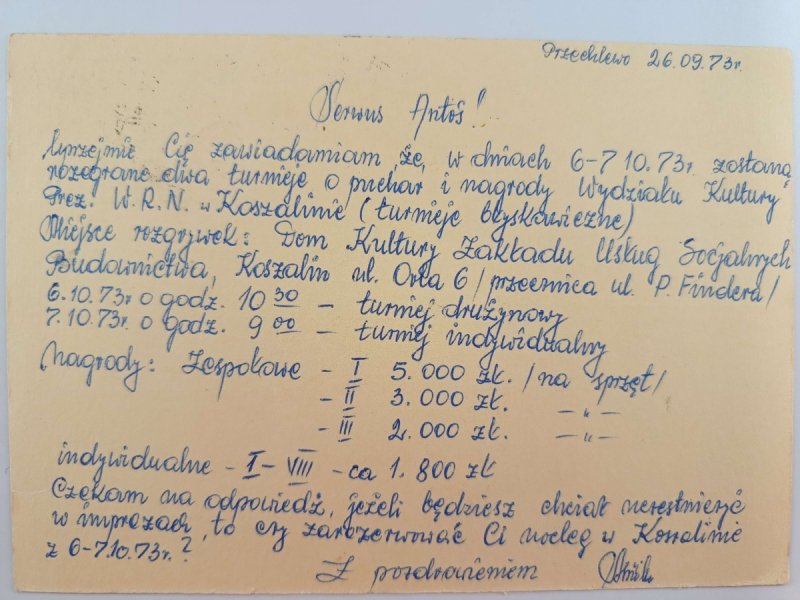 Przechlewo 26.09.73r.
Serwus Antoś!
Uprzejmie Cię zawiadamiam, że, w dniach 6-7 10.73r. zostaną
rozegrane dwa turnieje o puchar i nagrody Wydziału Kultury
Prez. W.R.N. w Koszalinie (turnieje błyskawiczne)
Miejsce rozgrywek: Dom Kultury Zakładu Usług Socjalnych
Budownictwa, Koszalin ul. Orla 6 /przecznica ul. P. Findera/
6.10.73r o godz. 10 30 – turniej drużynowy
7.10.73r. o godz. 9 00 – turniej indywidualny
Nagrody: Zespołowe – I 5.000 zł. /na sprzęt/
– II 3.000 zł. –"–
– III 2.000 zł. –"–
indywidualne – I – VIII – ca 1.800 zł
Czekam na odpowiedź, jeżeli będziesz chciał uczestniczyć
w imprezach, to czy zarezerwować Ci nocleg w Koszalinie
z 6-7.10.73r.?
Z pozdrowieniem